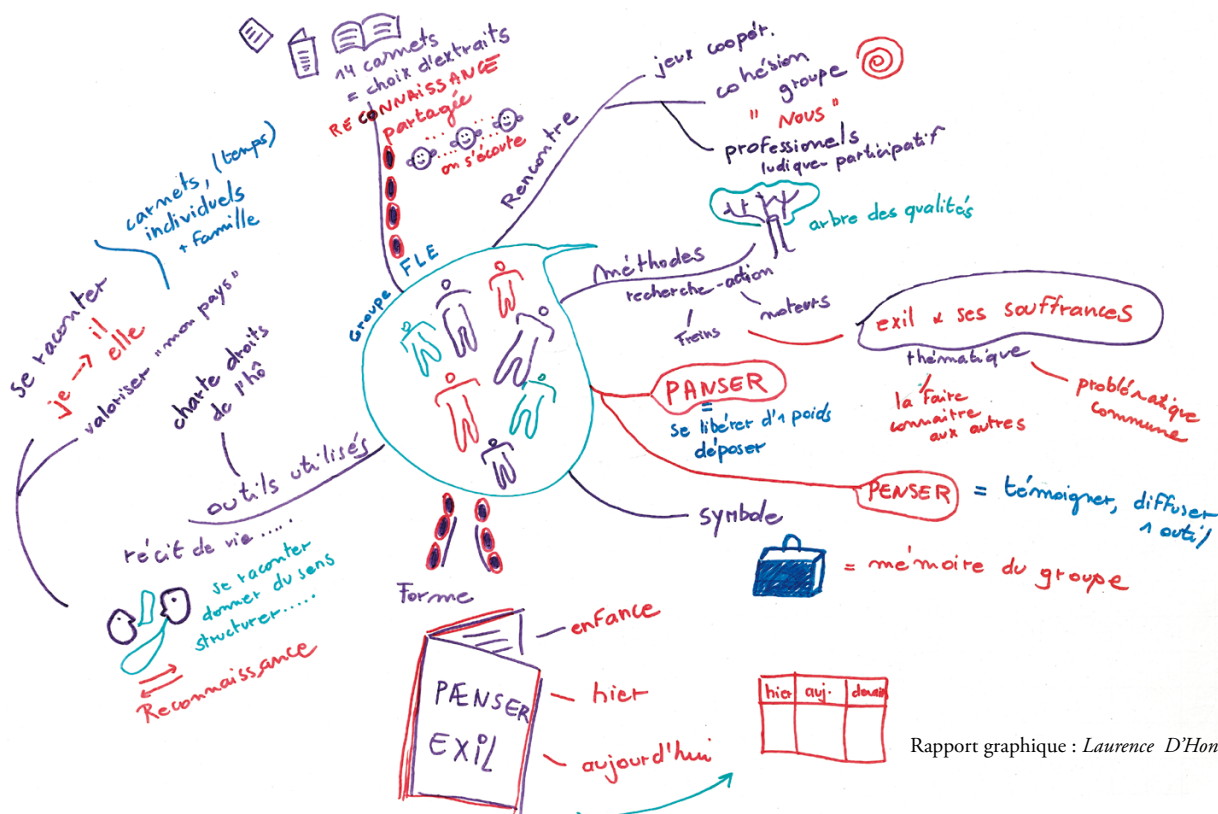 14 carnets
= choix d'extraits
RECONNAISSANCE
partagée
on s'écoute
Rencontre
jeux coopér.
cohésion
groupe
" NOUS "
professionels
ludique participatif
arbre des qualités
méthodes
recherche-action
Freins
moteurs
exil & ses souffrances
thématique
la faire
connaître
aux autres
problématique
commune
PANSER
=
se libérer d'1 poids
déposer
PENSER
= témoigner, diffuser
1 outil
symbole
= mémoire du groupe
Groupe FLE
carnets, (temps)
individuels
+ famille
se raconter
je → il
elle
valoriser "mon pays"
charte droits
de l'hô
outils utilisés
récit de vie .....
se raconter
donner du sens
structurer.....
Reconnaissance
Forme
PÆNSER
EXIL
enfance
hier
aujourd'hui
hier auj. demain
Rapport graphique : Laurence D'Hon